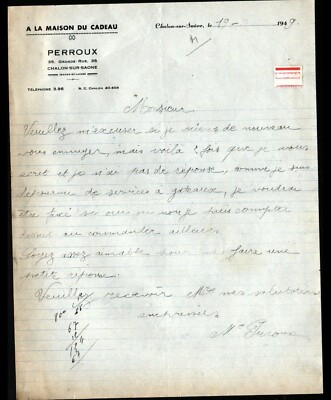 A LA MAISON DU CADEAU
PERROUX
36, Grande Rue, 36
CHALON-SUR-SAONE
(SAONE-ET-LOIRE)
TÉLÉPHONE 3.96
R. C. CHALON
Chalon-sur-Saône, le 19 194
Monsieur
Veuillez m'excuser si je viens de nouveau
vous ennuyer, mais voilà fois que je vous
écrit et je n'ai pas de réponse, comme je suis
de services a gateaux, je voudrai
être fixé si oui ou non je puis compter
ou commander ailleurs
Soyez assez aimable pour me faire une
réponse.
Veuillez recevoir mes salutations
empressées